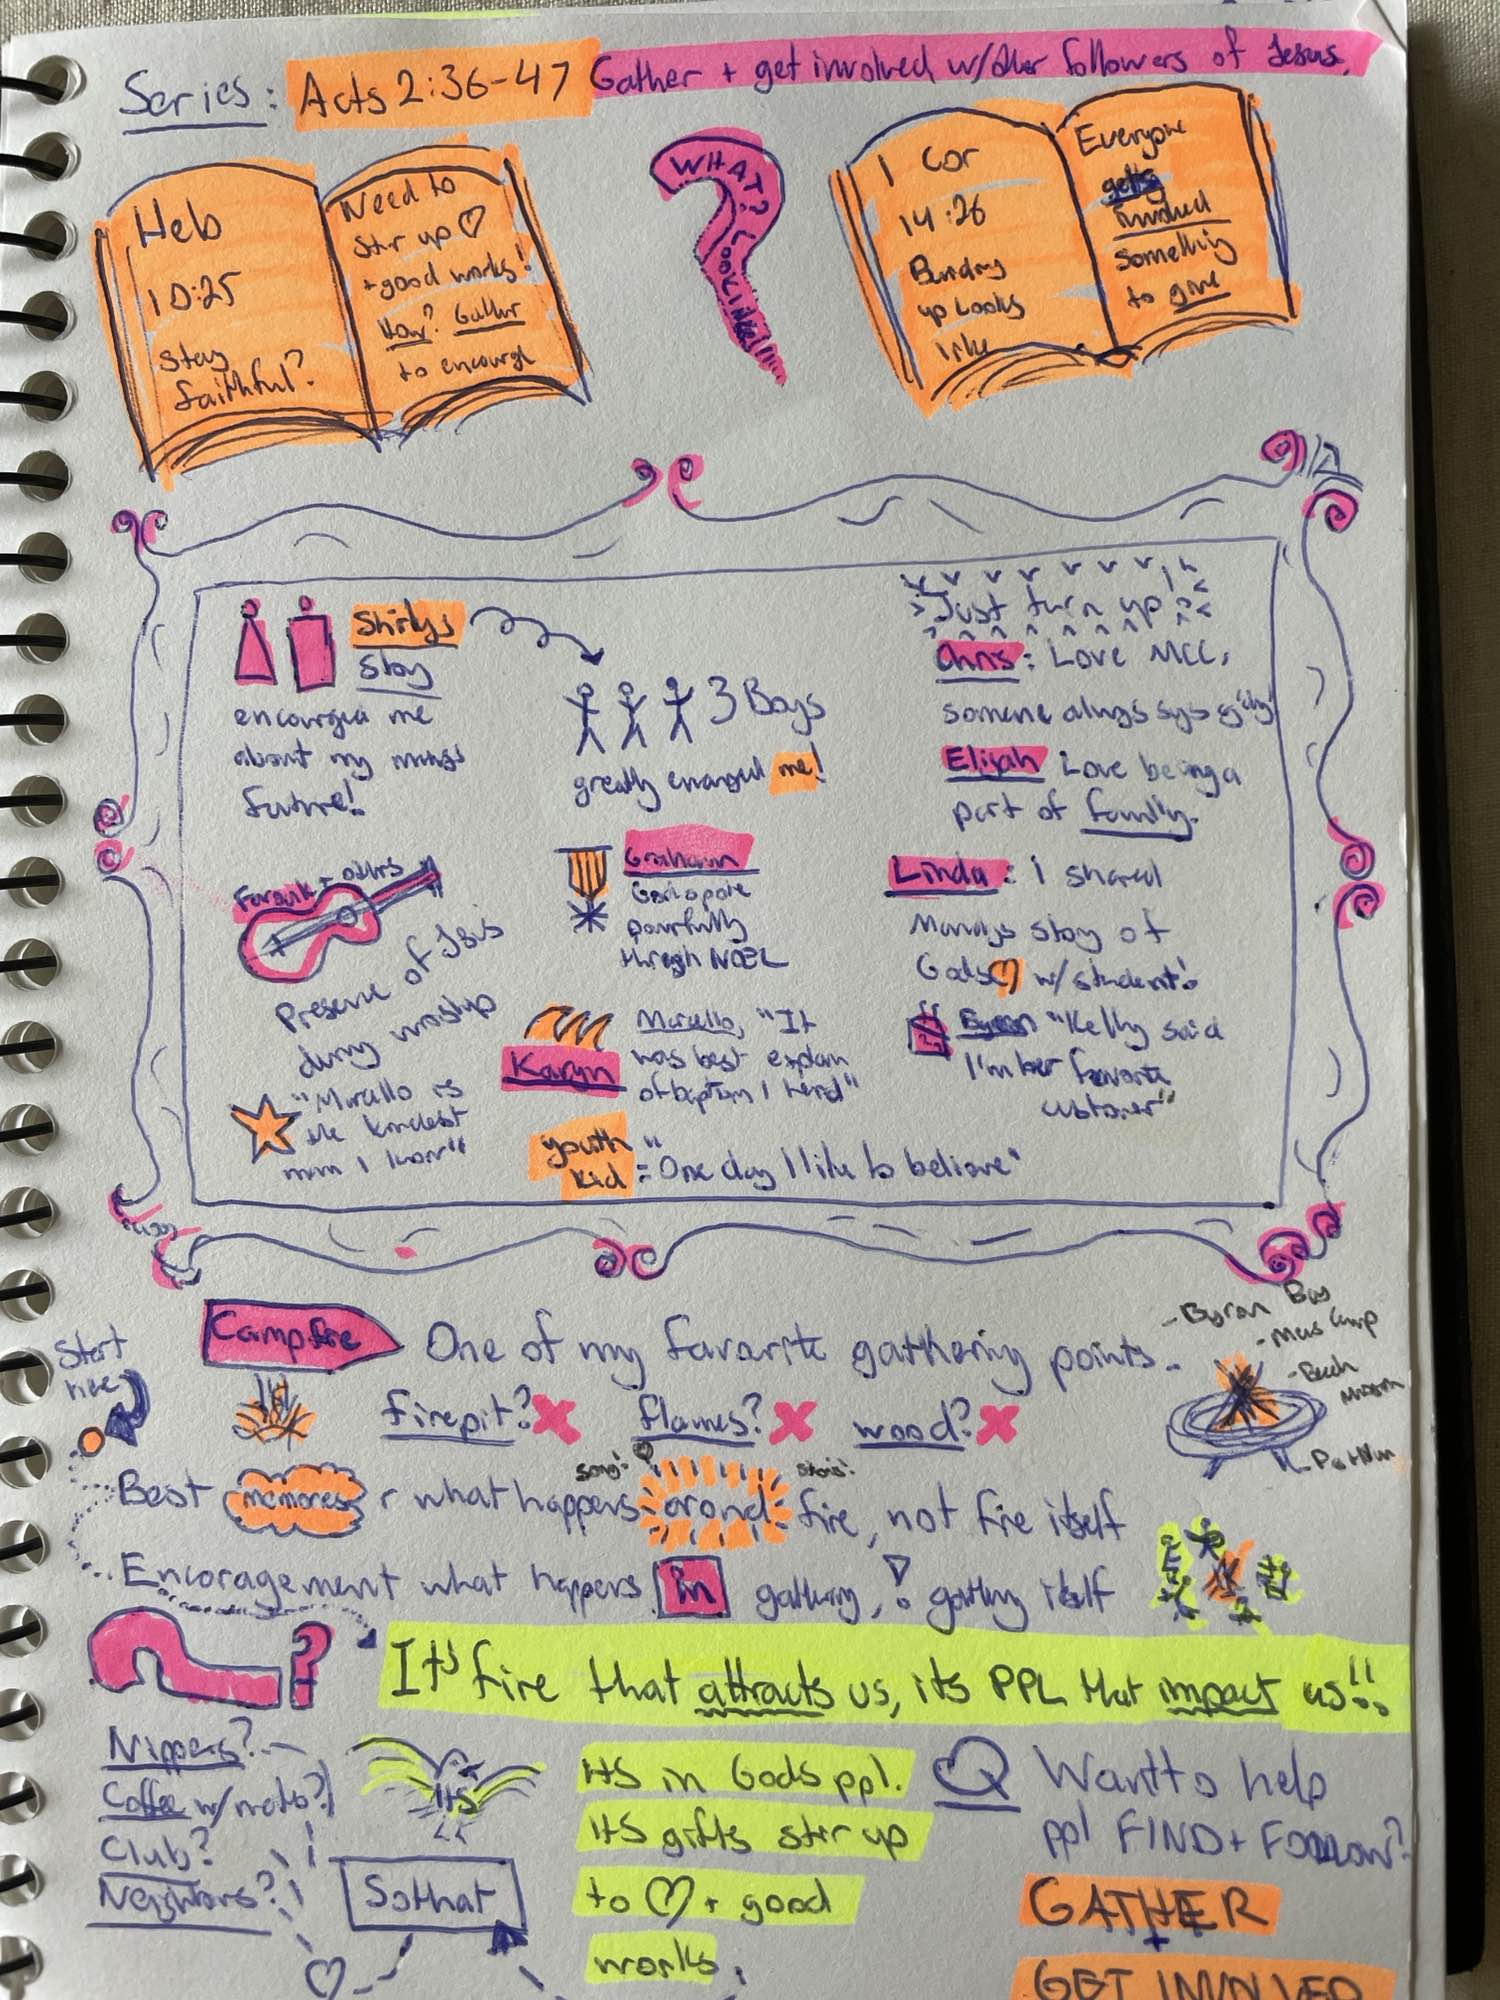 Series: Acts 2:36-47 Gather + get involved w/other followers of Jesus.
Heb
10:25
stay
faithful?
Need to
stir up ♡
+ good works!
How? Gather
to encourge
WHAT?
1 Cor
14:26
up Looks
like
Everyone
gets
involved
something
to give
Just turn up!
Shirlys
story
encourged me
about my mums
future!
3 Boys
greatly encouraged me!
Chris: Love MCC,
someone always says g'day!
Elijah Love being a
part of family.
Farouk + others
Presence of Jesus
during worship
Graham
God spoke
powerfully
through NOEL
Linda: I shared
Mandys story of
Gods ♡ w/ students!
Karyn
Marcello, "It
was best explain
of baptism I herd"
Byron "Kelly said
I'm her favorite
customer"
"Marcello is
the kindest
man I know"
youth
kid = "One day I like to believe"
Start
here
Campfire One of my favorite gathering points.
- Byron Bay
- Mens Camp
- Beach
Mission
firepit? X flames? X wood? X
song? stories?
Best memores r what happens arond fire, not fire itself
Encoragement what happens in gathering, ! gathering itself
It's fire that attracts us, its PPL that impact us!!
Nippers?
Coffee w/ mates?
Club?
Neighbors?
its
So that
its in Gods ppl.
its gifts stir up
to ♡ + good
works.
Q Want to help
ppl FIND + FOLLOW?
GATHER
+
GET INVOLVED